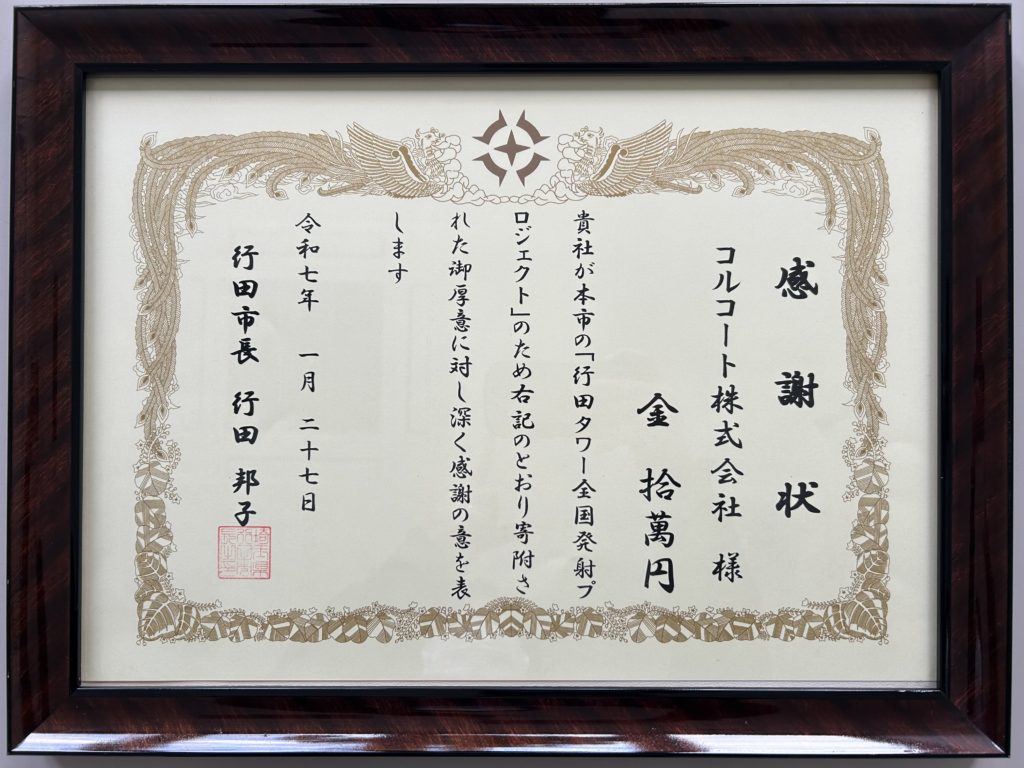 感謝状
コルコート株式会社 様
金 拾萬円
貴社が本市の「行田タワー全国発射プ
ロジェクト」のため右記のとおり寄附さ
れた御厚意に対し深く感謝の意を表
します
令和七年 一月 二十七日
行田市長 行田 邦子